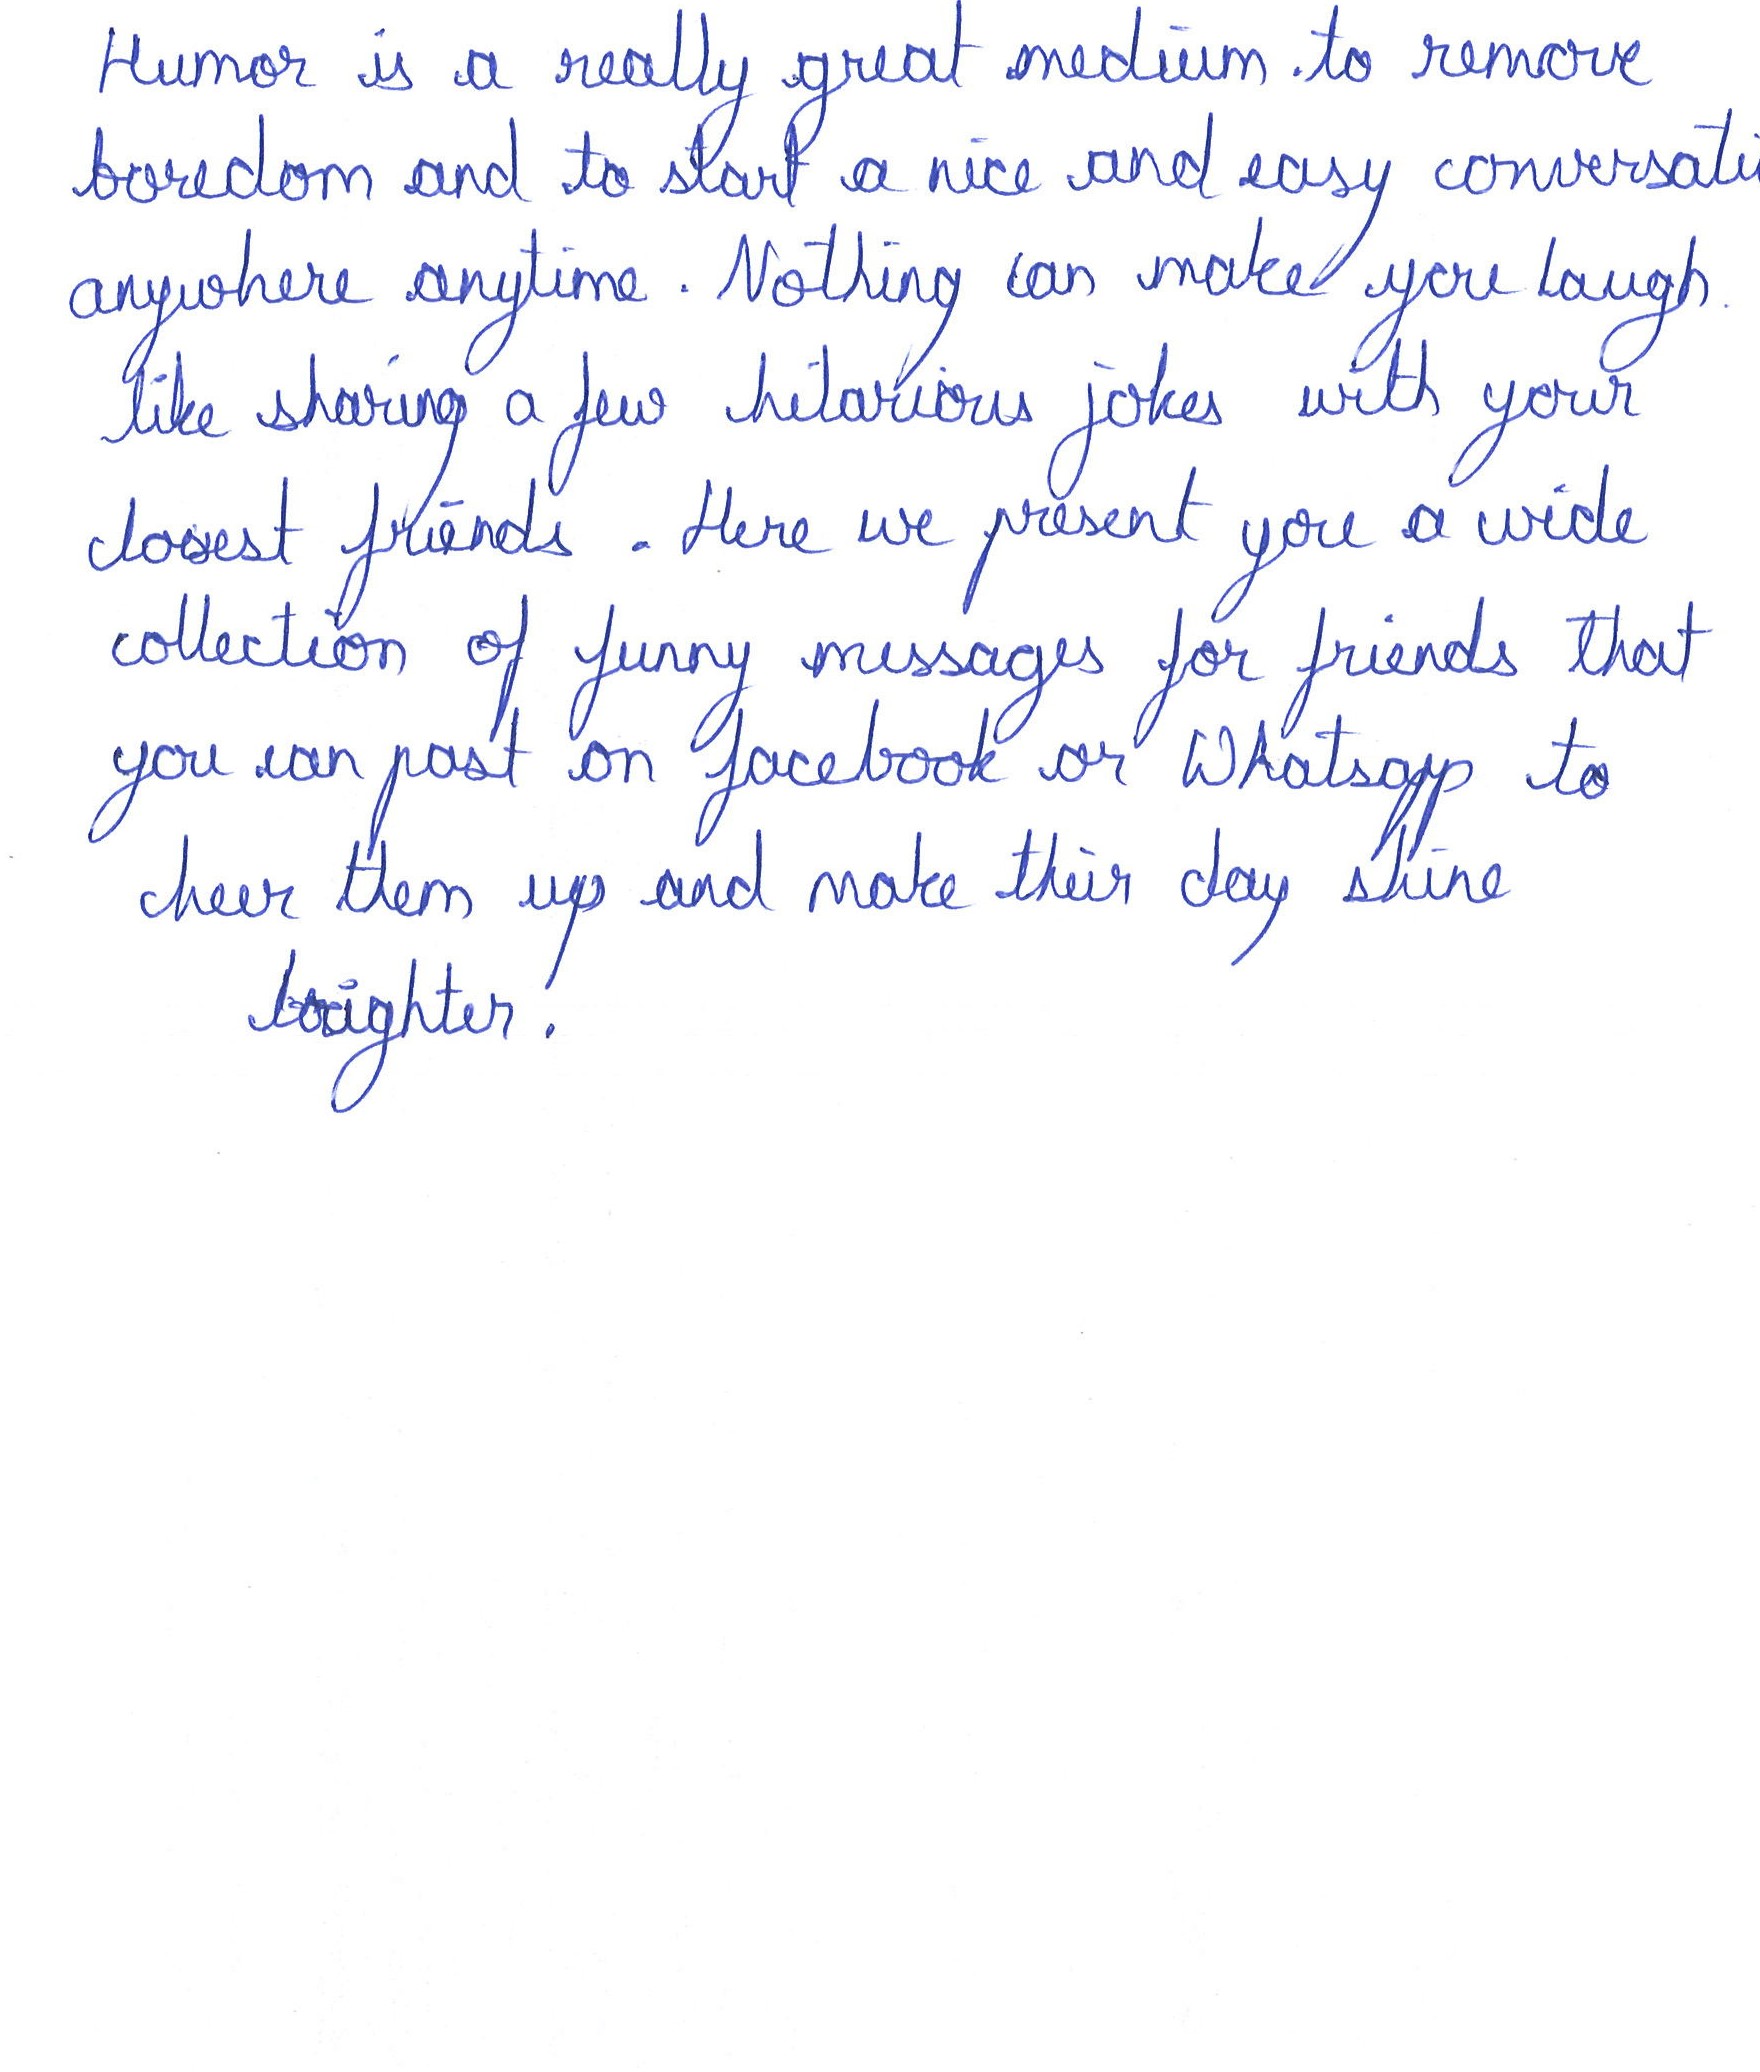 Humor is a really great medium to remove
boredom and to start a nice and easy conversati
anywhere anytime. Nothing can make you laugh
like sharing a few hilarious jokes with your
closest friends. Here we present you a wide
collection of funny messages for friends that
you can post on facebook or Whatsapp to
cheer them up and make their day shine
brighter!